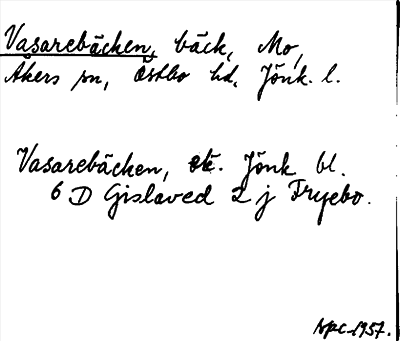 Vasarebäcken, bäck, Mo,
Åkers sn, Östbo hd, Jönk. l.
Vasarebäcken, ek. Jönk bl.
6 D Gislaved 2 j Fryebo.
1957.